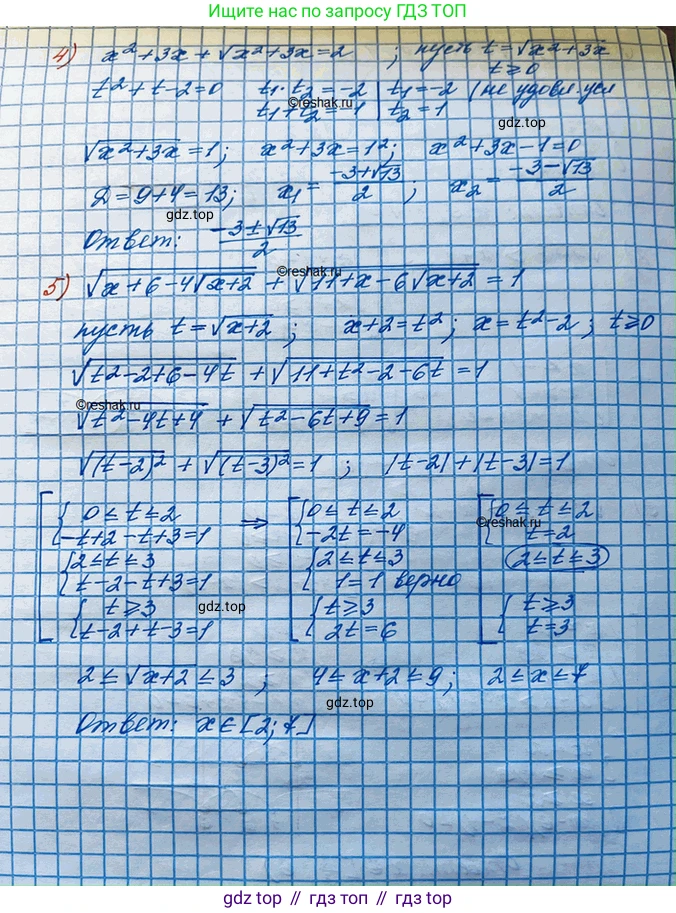 Ищите нас по запросу ГДЗ ТОП
4) x²+3x+√(x²+3x)=2 ; пусть t=√(x²+3x)
t≥0
t²+t-2=0 t₁·t₂=-2 | t₁=-2 (не удовл. усл
©reshak.ru
t₁+t₂=-1 | t₂=1
gdz.top
√(x²+3x)=1; x²+3x=1²; x²+3x-1=0
D=9+4=13; x₁=(-3+√13)/2 ; x₂=(-3-√13)/2
gdz.top
Ответ: (-3±√13)/2
©reshak.ru
5) √(x+6-4√(x+2)) + √(11+x-6√(x+2)) = 1
пусть t=√(x+2) ; x+2=t²; x=t²-2 ; t≥0
√(t²-2+6-4t) + √(11+t²-2-6t) =1
©reshak.ru
√(t²-4t+4) + √(t²-6t+9) =1
√((t-2)²) + √((t-3)²) =1 ; |t-2|+|t-3|=1
0≤t≤2 ⇒ 0≤t≤2 0≤t≤2
©reshak.ru
-t+2-t+3=1 -2t=-4 t=2
2≤t≤3 2≤t≤3 2≤t≤3
t-2-t+3=1 1=1 верно
t≥3 gdz.top t≥3 t≥3
t-2+t-3=1 2t=6 t=3
2≤√(x+2)≤3 ; 4≤x+2≤9; 2≤x≤7
gdz.top
Ответ: x∈[2;7]
gdz.top // гдз топ // gdz top